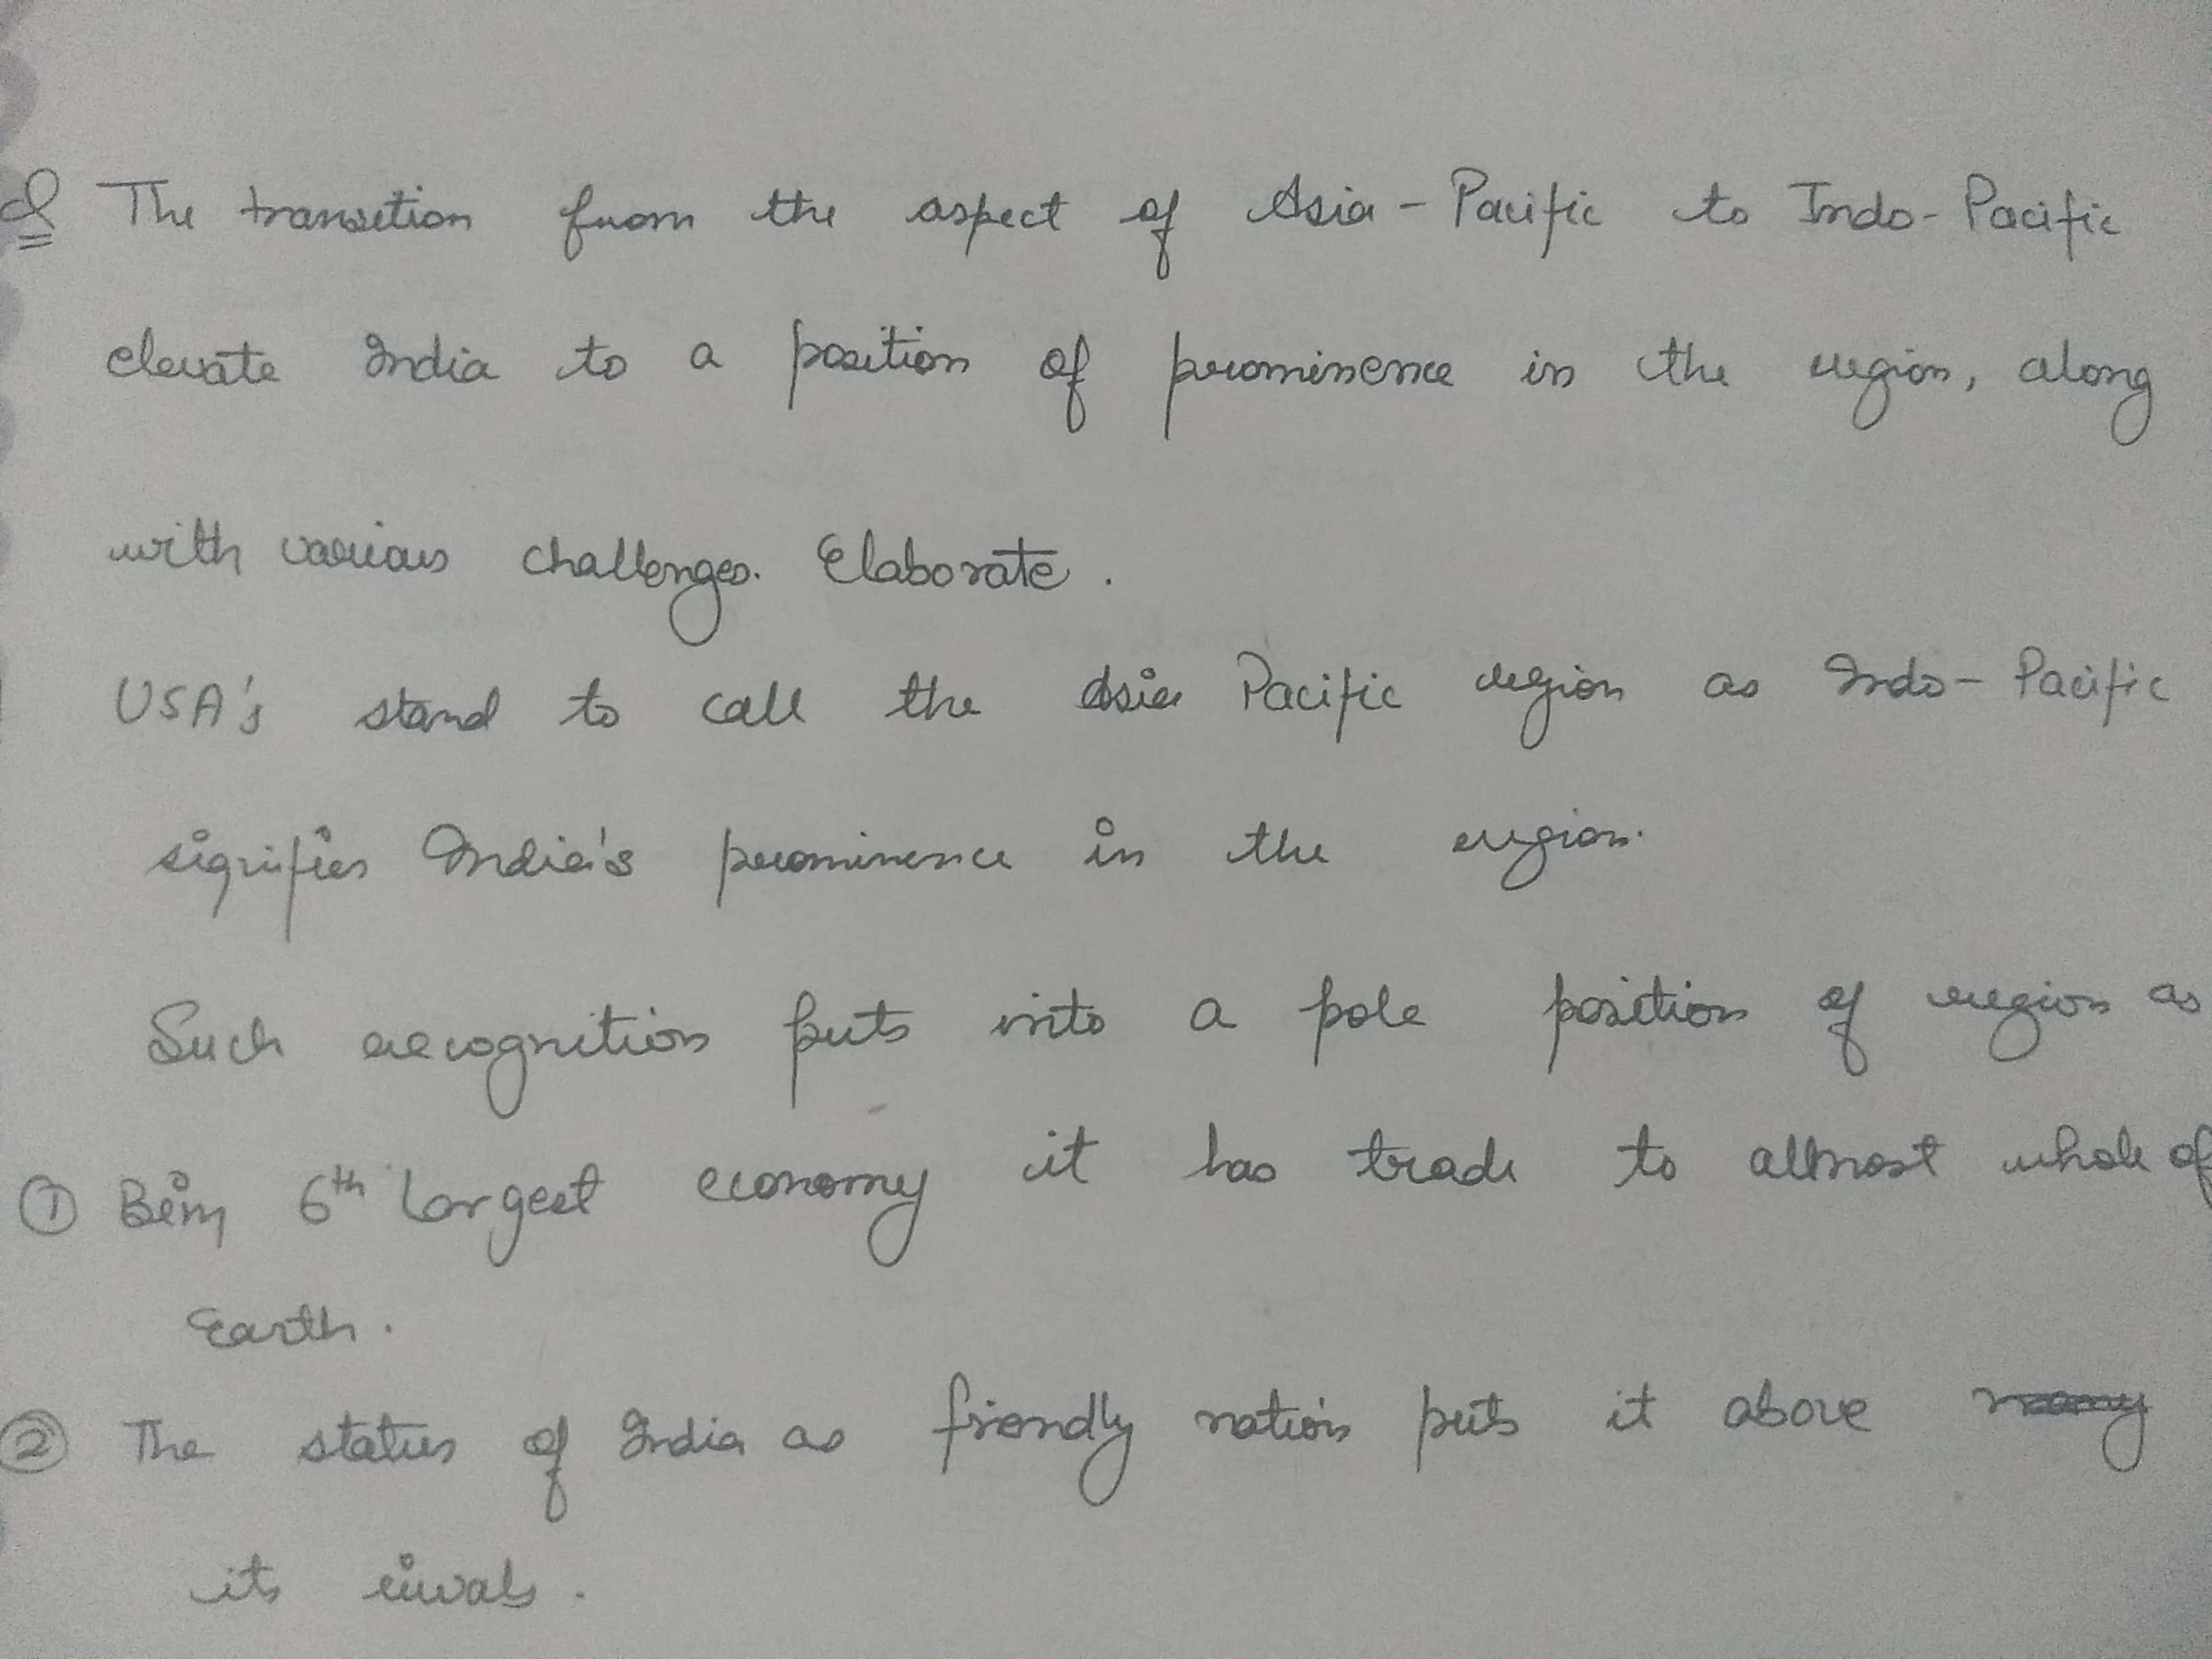 Q The transition from the aspect of Asia - Pacific to Indo - Pacific
elevate India to a position of prominence in the region, along
with various challenges. Elaborate .
USA's stand to call the Asia Pacific region as Indo - Pacific
signifies India's prominence in the region.
Such recognition puts into a pole position of region as
① Being 6th largest economy it has trade to allmost whole of
Earth .
② The status of India as friendly nation puts it above many
its rivals .